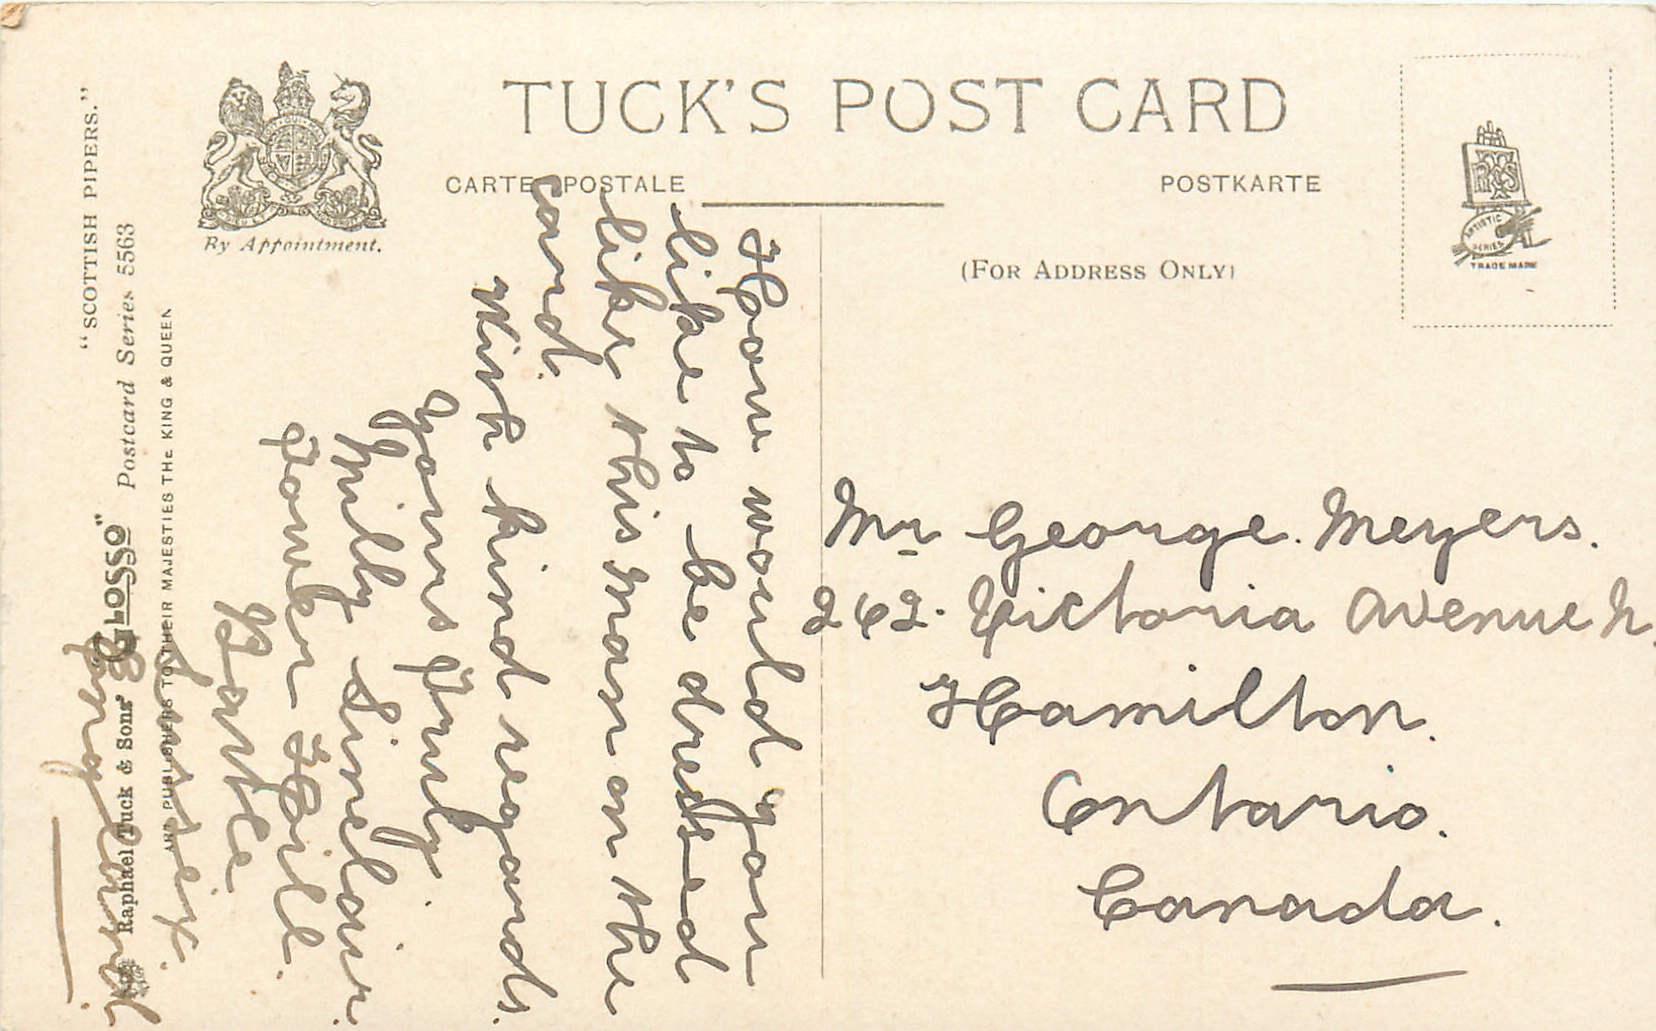 TUCK'S POST CARD
CARTE POSTALE
POSTKARTE
(FOR ADDRESS ONLY)
By Appointment.
ARTISTIC SERIES
TRADE MARK
"SCOTTISH PIPERS."
"GLOSSO" Postcard Series 5563
Raphael Tuck & Sons'
ART PUBLISHERS TO THEIR MAJESTIES THE KING & QUEEN
How would you
like to be dressed
like this man on the
card.
With kind regards.
Yours Truly.
Milly Sinclair.
Tower Hill.
Battle
Sussex.
England.
Mr George. Meyers.
262. Victoria Avenue N.
Hamilton.
Ontario.
Canada.